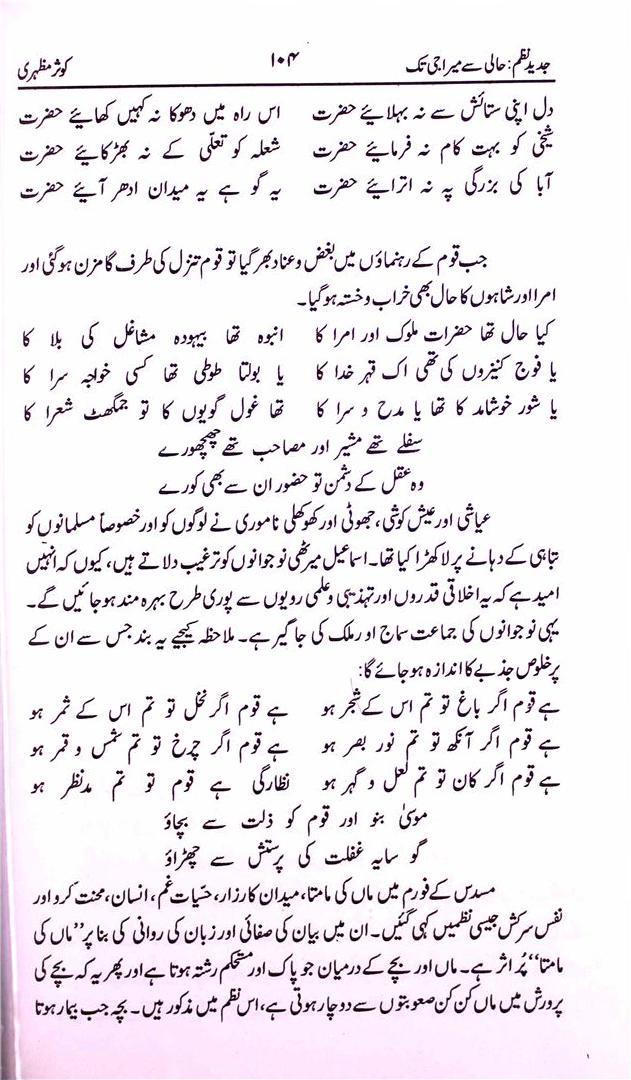 جدید نظم: حالی سے میراجی تک ۱۰۴ کوثر مظہری
دل اپنی ستائش سے نہ بہلایئے حضرت اس راہ میں دھوکا نہ کہیں کھایئے حضرت
شیخی کو بہت کام نہ فرمایئے حضرت شعلہ کو تعلّی کے نہ بھڑکایئے حضرت
آبا کی بزرگی پہ نہ اترایئے حضرت یہ گو ہے یہ میدان ادھر آیئے حضرت
جب قوم کے رہنماؤں میں بغض و عناد بھر گیا تو قوم تنزل کی طرف گامزن ہوگئی اور
امرا اور شاہوں کا حال بھی خراب و خستہ ہوگیا۔
کیا حال تھا حضرات ملوک اور امرا کا انبوہ تھا بیہودہ مشاغل کی بلا کا
یا فوج کنیزوں کی تھی اک قہر خدا کا یا بولتا طوطی تھا کسی خواجہ سرا کا
یا شور خوشامد کا تھا یا مدح و سرا کا تھا غول گویوں کا تو جمگھٹ شعرا کا
سفلے تھے مشیر اور مصاحب تھے چھچھورے
وہ عقل کے دشمن تو حضور ان سے بھی کورے
عیاشی اور عیش کوشی، جھوٹی اور کھوکھلی ناموری نے لوگوں کو اور خصوصاً مسلمانوں کو
تباہی کے دہانے پر لا کھڑا کیا تھا۔ اسماعیل میرٹھی نوجوانوں کو ترغیب دلاتے ہیں، کیوں کہ انہیں
امید ہے کہ یہ اخلاقی قدروں اور تہذیبی و علمی رویوں سے پوری طرح بہرہ مند ہوجائیں گے۔
یہی نوجوانوں کی جماعت سماج اور ملک کی جاگیر ہے۔ ملاحظہ کیجیے یہ بند جس سے ان کے
پرخلوص جذبے کا اندازہ ہوجائے گا:
ہے قوم اگر باغ تو تم اس کے شجر ہو ہے قوم اگر نخل تو تم اس کے ثمر ہو
ہے قوم اگر آنکھ تو تم نور بصر ہو ہے قوم اگر چرخ تو تم شمس و قمر ہو
ہے قوم اگر کان تو تم لعل و گہر ہو نظارگی ہے قوم تو تم مدنظر ہو
موسیٰ بنو اور قوم کو ذلت سے بچاؤ
گو سایہ غفلت کی پرستش سے چھڑاؤ
مسدس کے فورم میں ماں کی مامتا، میدان کارزار، حسّیات غم، انسان، محنت کرو اور
نفس سرکش جیسی نظمیں کہی گئیں۔ ان میں بیان کی صفائی اور زبان کی روانی کی بنا پر ”ماں کی
مامتا“ پُر اثر ہے۔ ماں اور بچے کے درمیان جو پاک اور مستحکم رشتہ ہوتا ہے اور پھر یہ کہ بچے کی
پرورش میں ماں کن کن صعوبتوں سے دوچار ہوتی ہے، اس نظم میں مذکور ہیں۔ بچہ جب بیمار ہوتا